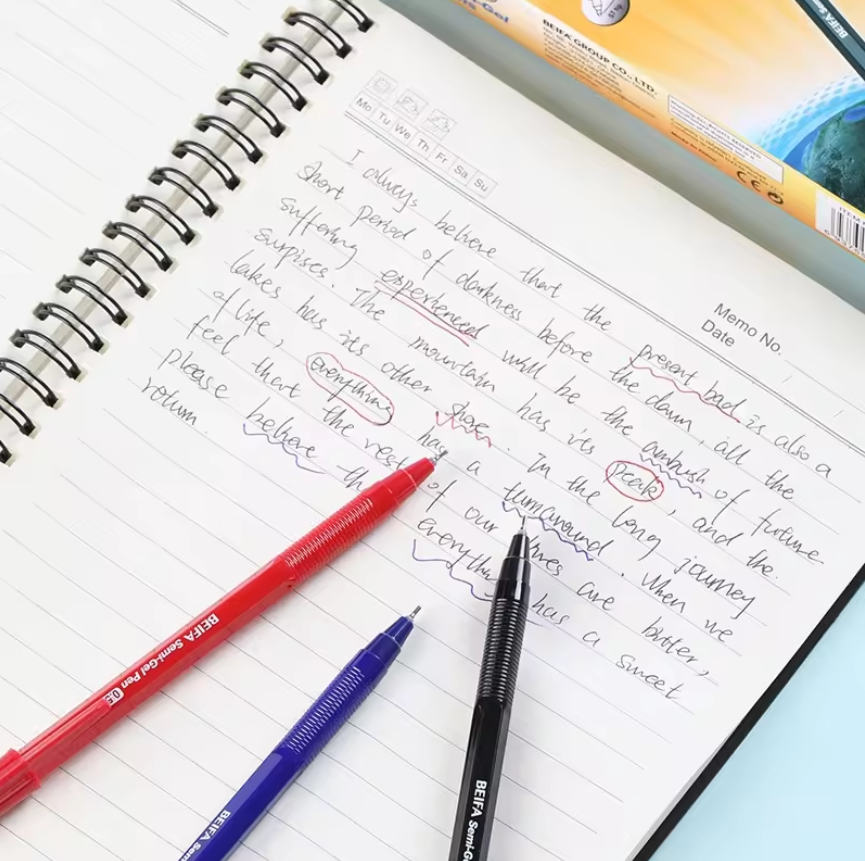 Semi-Gel
BEIFA GROUP CO., LTD.
CE
BEIFA
Mo Tu We Th Fr Sa Su
Memo No.
Date
I always believe that the present bad is also a
short period of darkness before the dawn, all the
suffering experienced will be the ambush of future
surpises. The mountain has its peak, and the
lakes has its other shore. In the long journey
of life, everything has a turnaround. When we
feel that the rest of our lives are bitter,
please believe th everything has a sweet
return.
BEIFA Semi-Gel Pen 0.5
BEIFA
BEIFA Semi-G